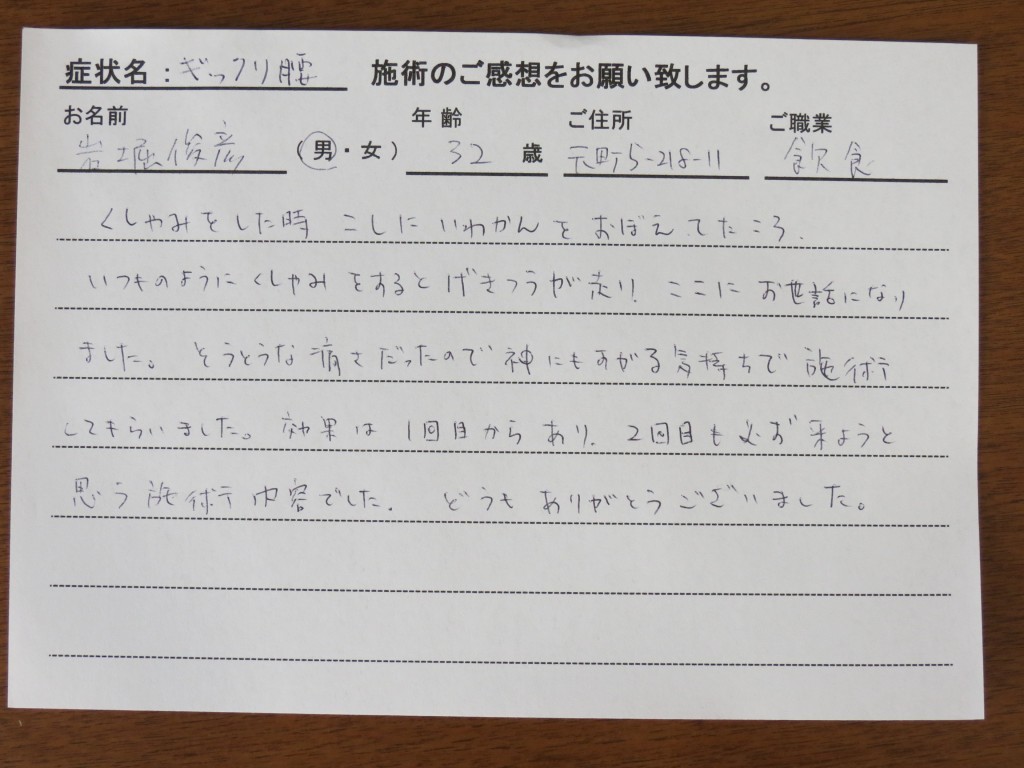 症状名：ぎっクリ腰　施術のご感想をお願い致します。
お名前　年齢　ご住所　ご職業
岩堀俊彦（男・女）32歳　元町5-218-11　飲食
くしゃみをした時 こしに いわかんを おぼえてたころ.
いつものようにくしゃみをするとげきつうが走り! ここに お世話になり
ました。 そうとうな痛さだったので神にもすがる気持ちで 施術
してもらいました。 効果は 1回目から あり. 2回目も必ず来ようと
思う施術内容でした. どうも ありがとうございました。